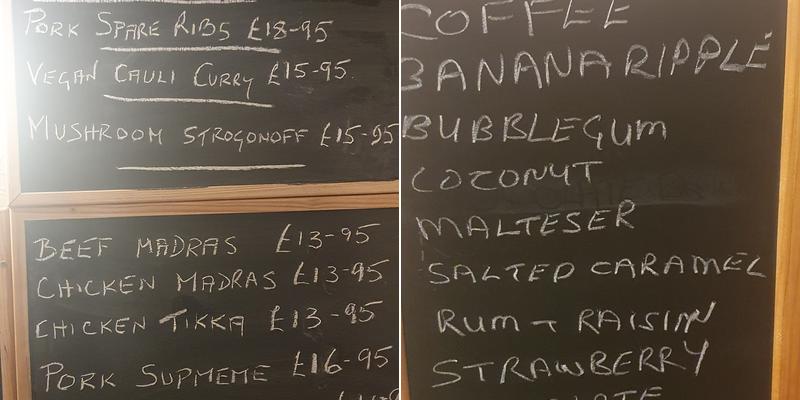 PORK SPARE RIBS £18-95
VEGAN CAULI CURRY £15-95
MUSHROOM STROGONOFF £15-95
BEEF MADRAS £13-95
CHICKEN MADRAS £13-95
CHICKEN TIKKA £13-95
PORK SUPMEME £16-95
COFFEE
BANANA RIPPLE
BUBBLEGUM
COCONUT
MALTESER
SALTED CARAMEL
RUM + RAISIN
STRAWBERRY